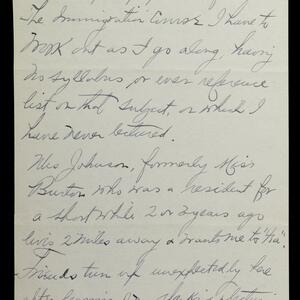 The Immigration Course I have to
work out as I go along, having
no syllabus or even reference
list on that subject, on which I
have never lectured.
Mrs Johnson, formerly Miss
Burton who was a resident for
a short while 2 or 3 years ago
lives 2 miles away & wants me to "tea".
Friends turn up unexpectedly here
after